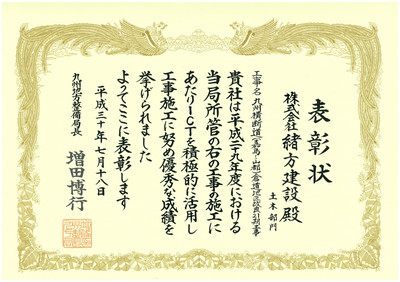 表彰状
土木部門
株式会社 緒方建設 殿
工事名 九州横断道(嘉島~山都)
貴社は平成二十九年度における
当局所管の右の工事の施工に
あたりICTを積極的に活用し
工事施工に努め優秀な成績を
挙げられました
よってここに表彰します
平成三十年七月十八日
九州地方整備局長
増田博行